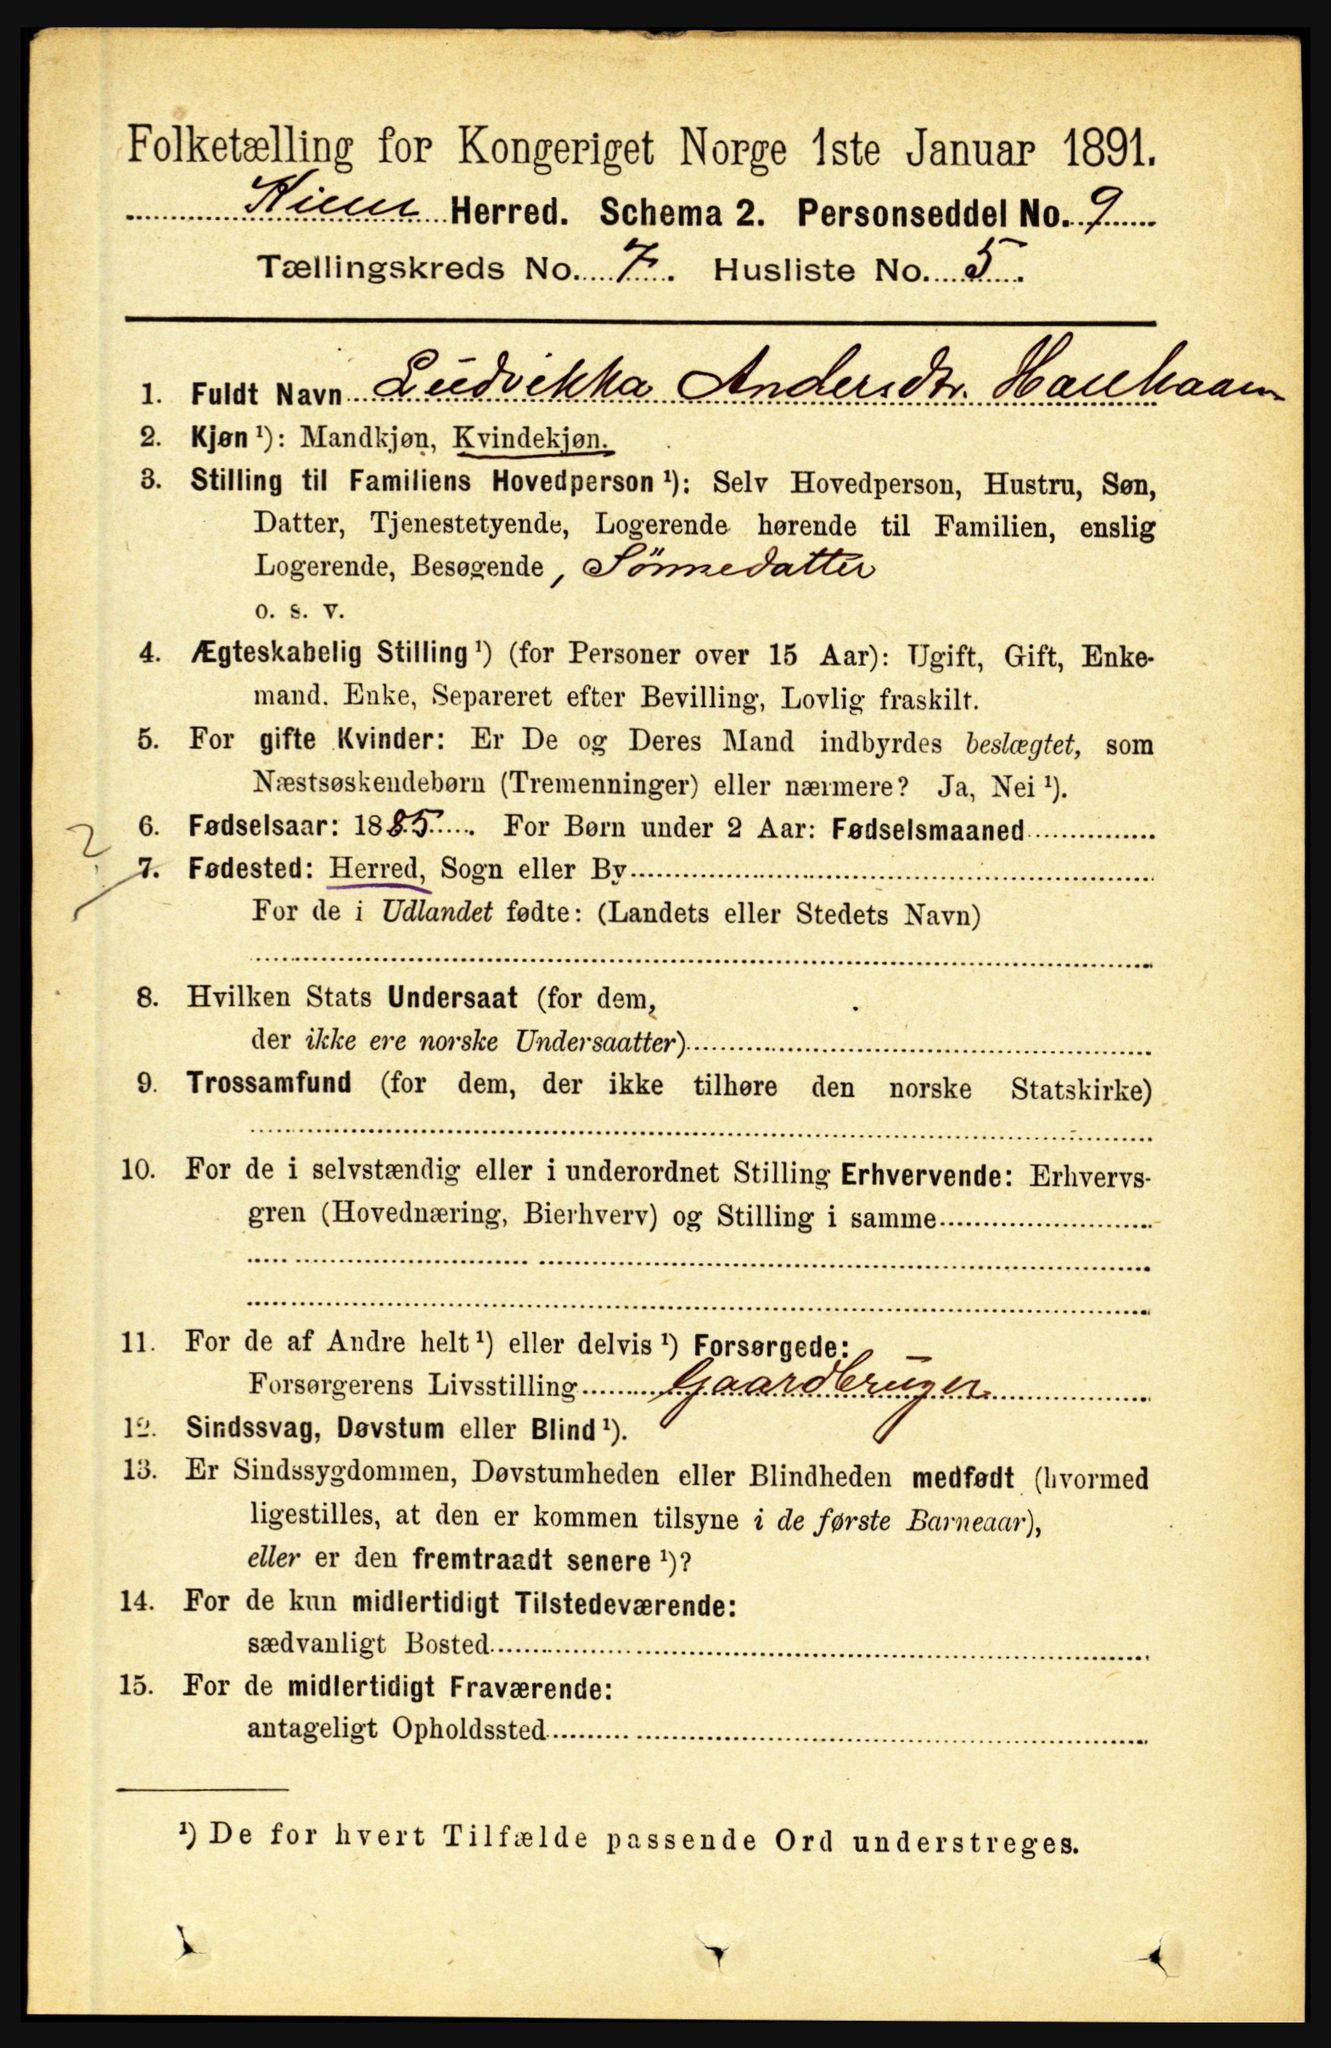 Folketælling for Kongeriget Norge 1ste Januar 1891.
Kinn Herred. Schema 2. Personseddel No. 9
Tællingskreds No. 7. Husliste No. 5.
1. Fuldt Navn Ludvikka Andersdtr. Haukaaen
2. Kjøn ¹): Mandkjøn, Kvindekjøn.
3. Stilling til Familiens Hovedperson ¹): Selv Hovedperson, Hustru, Søn,
Datter, Tjenestetyende, Logerende hørende til Familien, enslig
Logerende, Besøgende, Sönnedatter
o. s. v.
4. Ægteskabelig Stilling ¹) (for Personer over 15 Aar): Ugift, Gift, Enke-
mand. Enke, Separeret efter Bevilling, Lovlig fraskilt.
5. For gifte Kvinder: Er De og Deres Mand indbyrdes beslægtet, som
Næstsøskendebørn (Tremenninger) eller nærmere? Ja, Nei ¹).
6. Fødselsaar: 1885. For Børn under 2 Aar: Fødselsmaaned
2
7. Fødested: Herred, Sogn eller By
For de i Udlandet fødte: (Landets eller Stedets Navn)
8. Hvilken Stats Undersaat (for dem,
der ikke ere norske Undersaatter)
9. Trossamfund (for dem, der ikke tilhøre den norske Statskirke)
10. For de i selvstændig eller i underordnet Stilling Erhvervende: Erhvervs-
gren (Hovednæring, Bierhverv) og Stilling i samme
11. For de af Andre helt ¹) eller delvis ¹) Forsørgede:
Forsørgerens Livsstilling Gaardbruger
12. Sindssvag, Døvstum eller Blind ¹).
13. Er Sindssygdommen, Døvstumheden eller Blindheden medfødt (hvormed
ligestilles, at den er kommen tilsyne i de første Barneaar),
eller er den fremtraadt senere ¹)?
14. For de kun midlertidigt Tilstedeværende:
sædvanligt Bosted
15. For de midlertidigt Fraværende:
antageligt Opholdssted
¹) De for hvert Tilfælde passende Ord understreges.